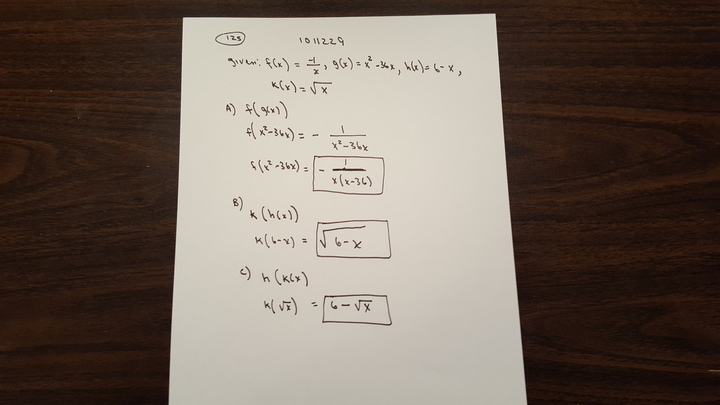 123
1011229
given: f(x) = -1/x, g(x) = x² - 36x, h(x) = 6 - x,
k(x) = √x
A) f(g(x))
f(x² - 36x) = - 1/(x² - 36x)
f(x² - 36x) = - 1/(x(x-36))
B) k(h(x))
k(6-x) = √(6-x)
C) h(k(x)
k(√x) = 6 - √x